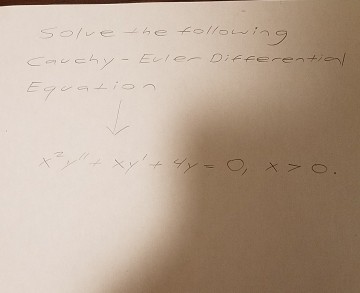 Solve the following
Cauchy-Euler Differential
Equation
↓
x²y'' + xy' + 4y = 0, x > 0.